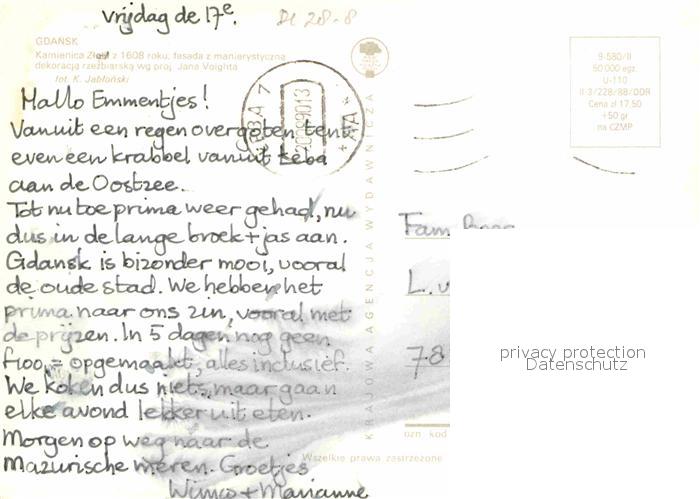 vrijdag de 17e.
Di 28-8
GDAŃSK
Kamienica Złota z 1608 roku, fasada z manierystyczną
dekoracją rzeźbiarską wg proj. Jana Voighta
fot. K. Jabłoński
Hallo Emmentjes!
Vanuit een regen overgoten tent
even een krabbel vanuit Łeba
aan de Oostzee.
Tot nu toe prima weer gehad, nu
dus in de lange broek + jas aan.
Gdansk is bizonder mooi, vooral
de oude stad. We hebben het
prima naar ons zin, vooral met
de prijzen. In 5 dagen nog geen
f100,= opgemaakt, alles inclusief.
We koken dus niets, maar gaan
elke avond lekker uit eten.
Morgen op weg naar de
Mazurische meren. Groetjes
Wimco + Marianne
KRAJOWA AGENCJA WYDAWNICZA
9-580/II
50 000 egz.
U-110
II-3/228/88/DDR
Cena zł 17,50
+50 gr
na CZMP
Fam.
L. v
78
privacy protection
Datenschutz
ozn kod
Wszelkie prawa zastrzeżone